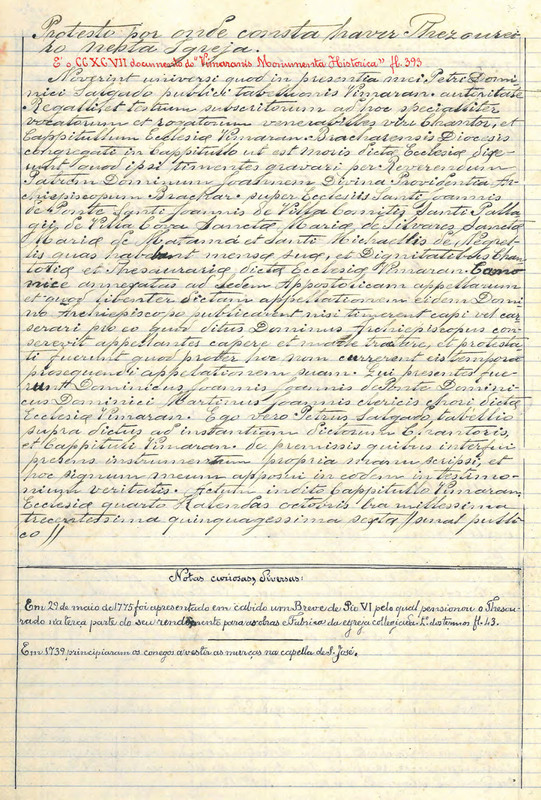 Protesto por onde consta haver Thezourei-
ro nesta Igreja.
É o CCXCVII documento do "Vimaranis Monumenta Historica" fl. 393
Noverint universi quod in presentia mei Petri Domi
nici Salgado publici tabellionis Vimaran. autoritate
Regalli, et testium subscritorum ad hoc specialliter
vocatorum et rogatorum venerabilles viri Chantor, et
Cappitullum Ecclesiæ Vimaran. Bracharensis Diocesis
congregati in Cappitullo ut est moris dictæ Ecclesiæ dixe-
runt quod ipsi timentes gravari per Reverendum
Patrem Dominum Joannem Divina Providentia Ar-
chiepiscopum Brachar. super Ecclesiis Santi Joannis
de Ponte, Santi Joannis de Villa Comitis, Santi Pella
gii de Villa Cova Sanctæ Mariæ de Silvares Sanctæ
Mariæ de Matamá et Santi Michaellis de Negrel-
lis quas habent mensæ suæ, et Dignitatibus Chan
toriæ et Thesaurariæ dictæ Ecclesiæ Vimaran. Cano
nice annegatas ad sedem Appostoricam appellarum
et quod libenter dictam appellationem eidem Domi
no Archiepiscopo publicarent nisi timerent capi vel car
serari pro eo quod ditus Dominus Archiepiscopus con
serevit appellantes capere et male tractere, et protesta
ti fuerunt quod propter hoc non currerent eis tempora
prosequendi appelationem suam. Qui presentes fue
runt Dominicus Joannis Joannis de Ponto Domini
cus Dominici Martinus Joannis clericis chori dictæ
Ecclesiæ Vimaran. Ego vero Petrus Salgado, tabellio
supra dictus ad instantiam dictorum Chantoris,
et Cappituli Vimaran. de premissis quibus interfui
presens instrumentum propria manu scripsi, et
hoc signum meum apposui in eodem in testimo-
nium veritatis. Actum in dito Cappitullo Vimaran.
Ecclesiæ quarto Kalendas Era millessima
trecentessima quinquagessima sexta signal publi
co //
Notas curiosas, Diversas:
Em 29 de maio de 1775 foi apresentado em cabido um Breve de Pio VI pelo qual pensionou o Thesou-
rado na terça parte do seu rendimento para as obras e Fabrica da egreja collegiada. L.º dos termos fl. 43.
Em 1739 principiaram os conegos a vestir as murças na capella de S. José.